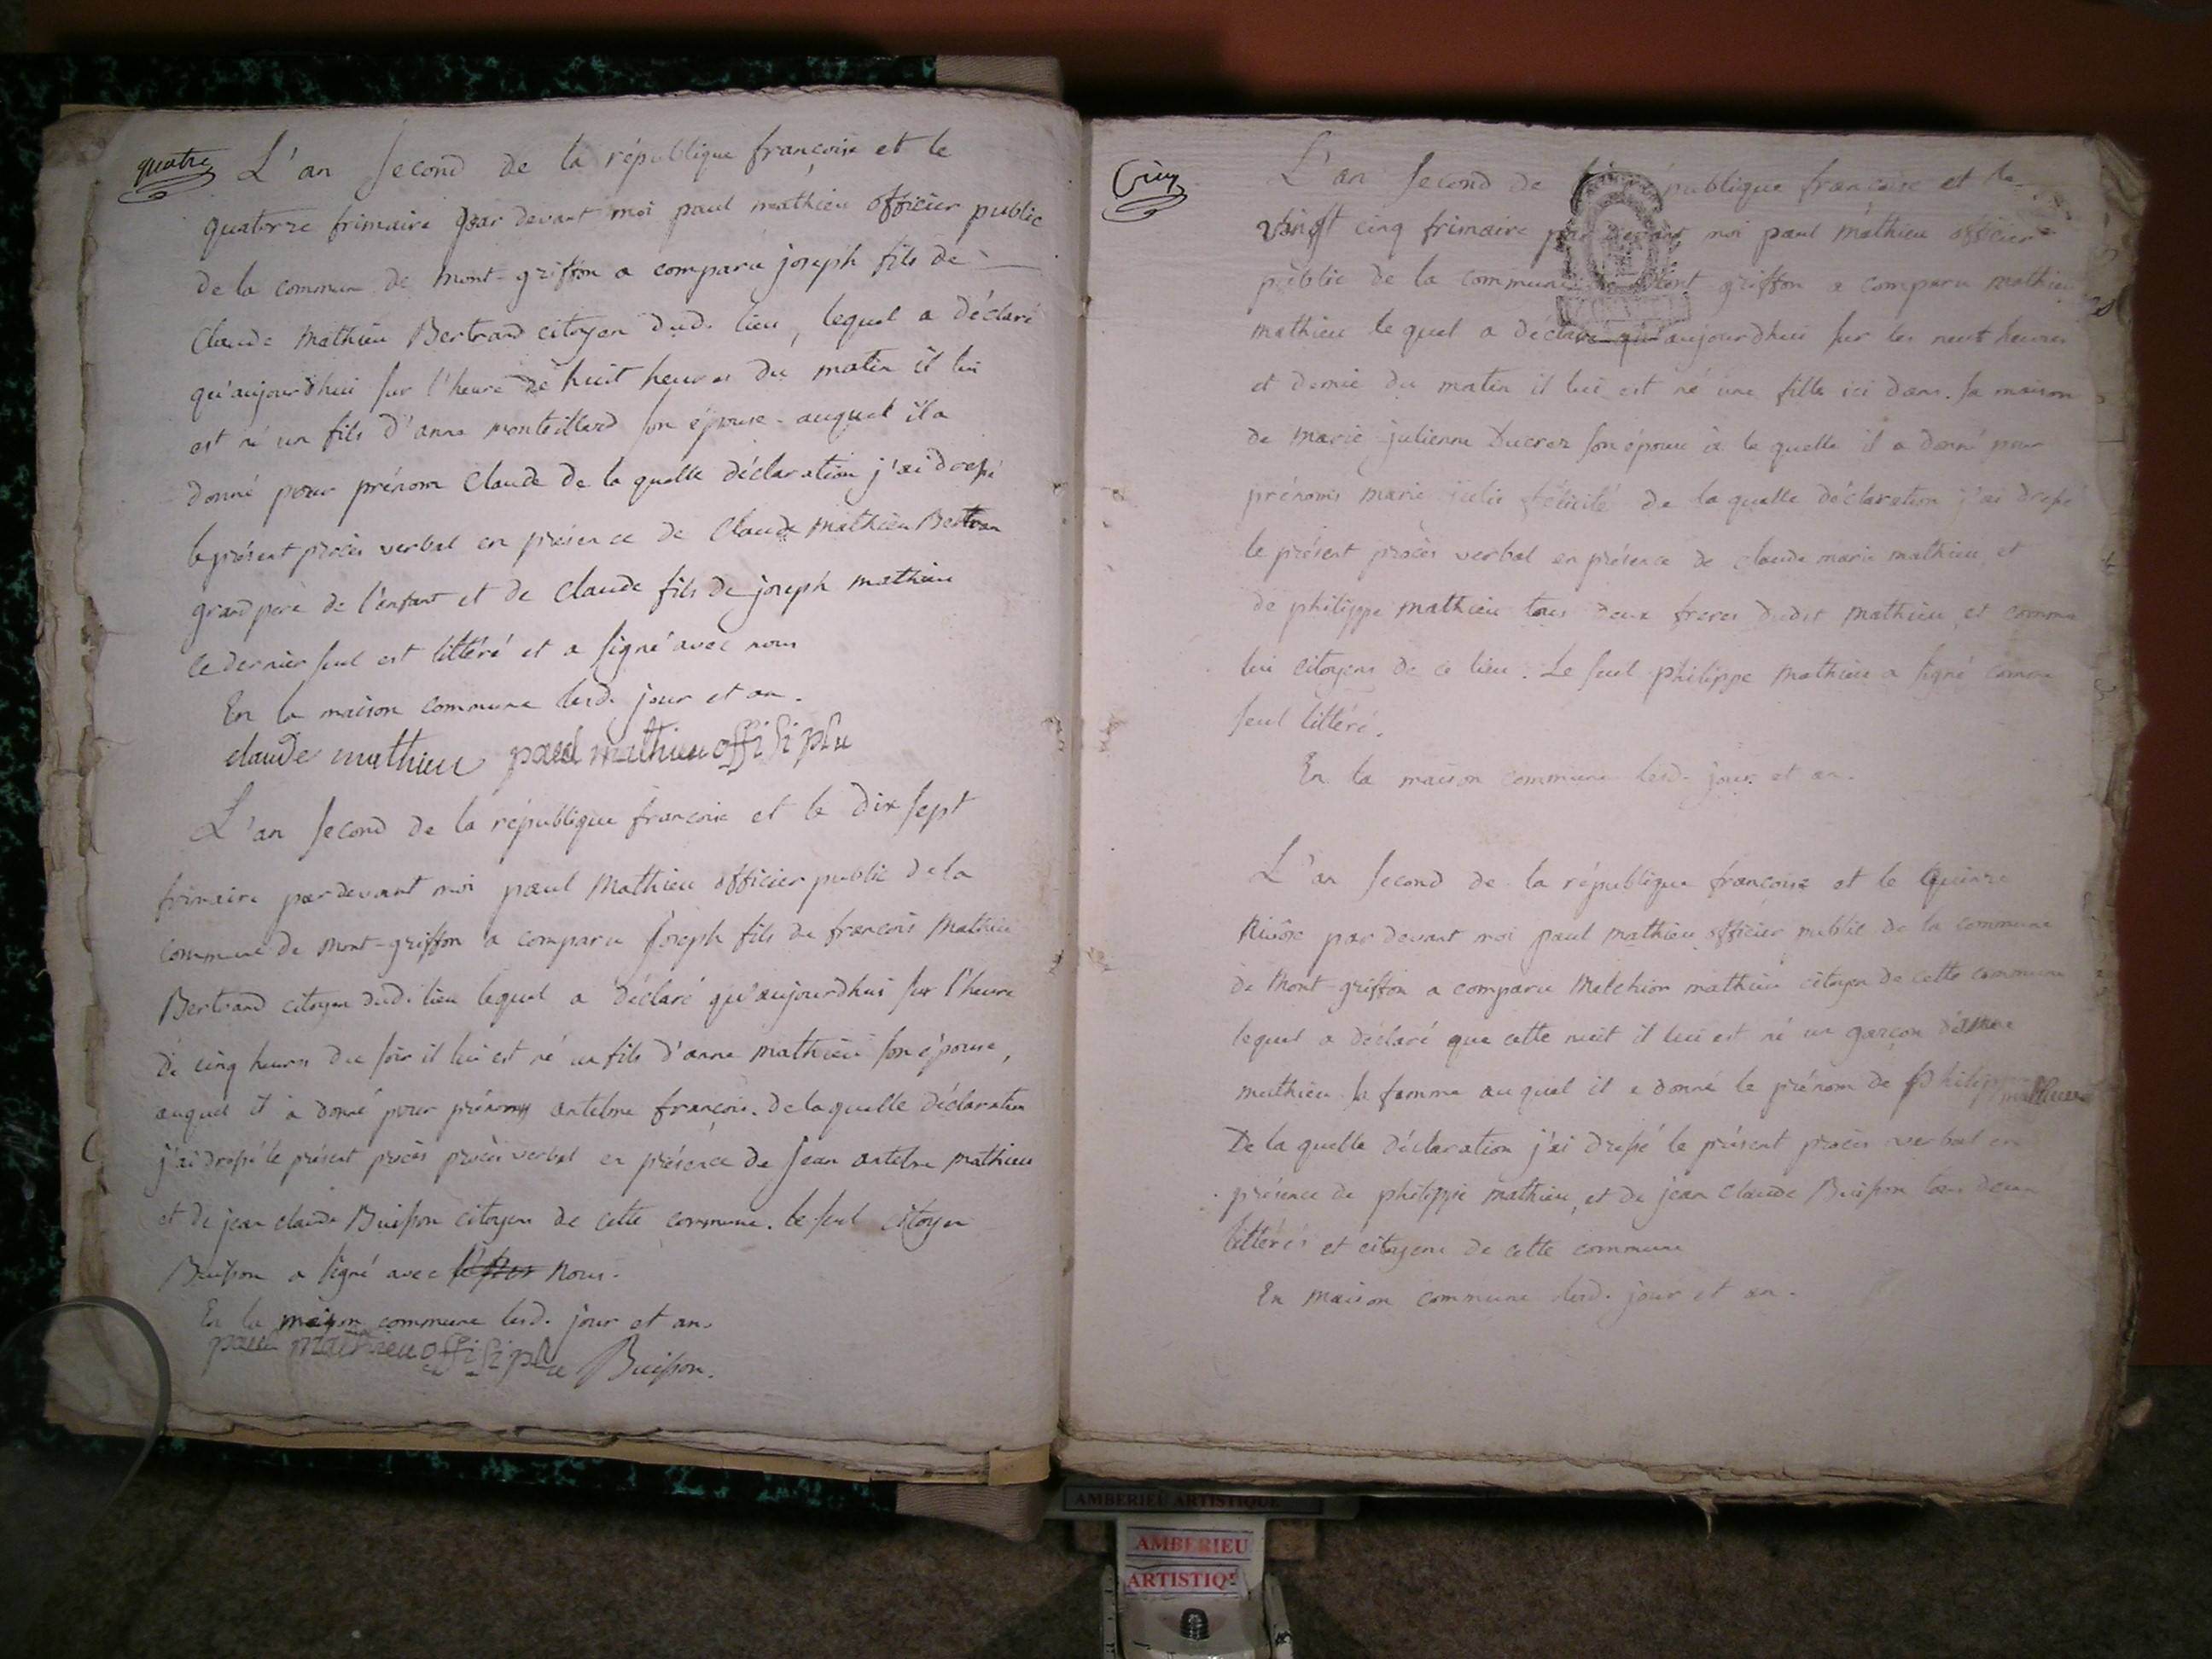 quatre
L'an second de la république françoise et le
quatorze frimaire par devant moi paul mathieu officier public
de la commune de mont-griffon a comparu joseph fils de
Claude Mathieu Bertrand citoyen dud. lieu, lequel a déclaré
qu'aujourdhui sur l'heure de huit heures du matin il lui
est né un fils d'anne monteillard son épouse auquel il a
donné pour prénom Claude de la quelle déclaration j'ai dressé
le présent procès verbal en présence de Claude Mathieu Bertran
grand père de l'enfant et de Claude fils de joseph mathieu
ce dernier seul est littéré et a signé avec nous
En la maison commune lesd. jour et an.
claude mathieu paul mathieu
L'an second de la république françoise et le dix sept
frimaire pardevant moi paul Mathieu officier public de la
commune de Mont-griffon a comparu Joseph fils de francois Mathieu
Bertrand citoyen dud. lieu lequel a déclaré qu'aujourdhui sur l'heure
de cinq heures du soir il lui est né un fils d'anne mathieu son épouse,
auquel il a donné pour prénoms antelme françois. De la quelle déclaration
j'ai dressé le présent procès procès verbal en présence de Jean antelme mathieu
et de jean claude Buisson citoyens de cette commune. le seul citoyen
Buisson a signé avec nous.
En la maison commune lesd. jour et an.
paul mathieu Buisson.
Cinq
L'an second de la république françoise et le
vingt cinq frimaire par devant moi paul mathieu officier
public de la commune de Mont griffon a comparu mathieu
mathieu le quel a déclaré qu'aujourdhui sur les neuf heures
et demie du matin il lui est né une fille ici dans sa maison
de marie julienne Ducrez son épouse à la quelle il a donné pour
prénoms marie julie félicité de la quelle déclaration j'ai dressé
le présent procès verbal en présence de claude marie mathieu et
de philippe mathieu tous deux freres dudit Mathieu, et comme
lui citoyens de ce lieu. Le seul philippe mathieu a signé comme
seul littéré.
En la maison commune lesd. jour et an.
L'an second de la république françoise et le Quinze
Nivôse par devant moi paul mathieu officier public de la commune
de Mont-griffon a comparu Melchior mathieu citoyen de cette commune
lequel a déclaré que cette nuit il lui est né un garçon d'anne
mathieu sa femme auquel il a donné le prénom de Philippe mathieu
De la quelle déclaration j'ai dressé le présent procès verbal en
présence de philippe mathieu, et de jean claude Buisson tous deux
littérés et citoyens de cette commune
En maison commune lesd. jour et an.
AMBERIEU ARTISTIQUE
AMBERIEU
ARTISTIQ